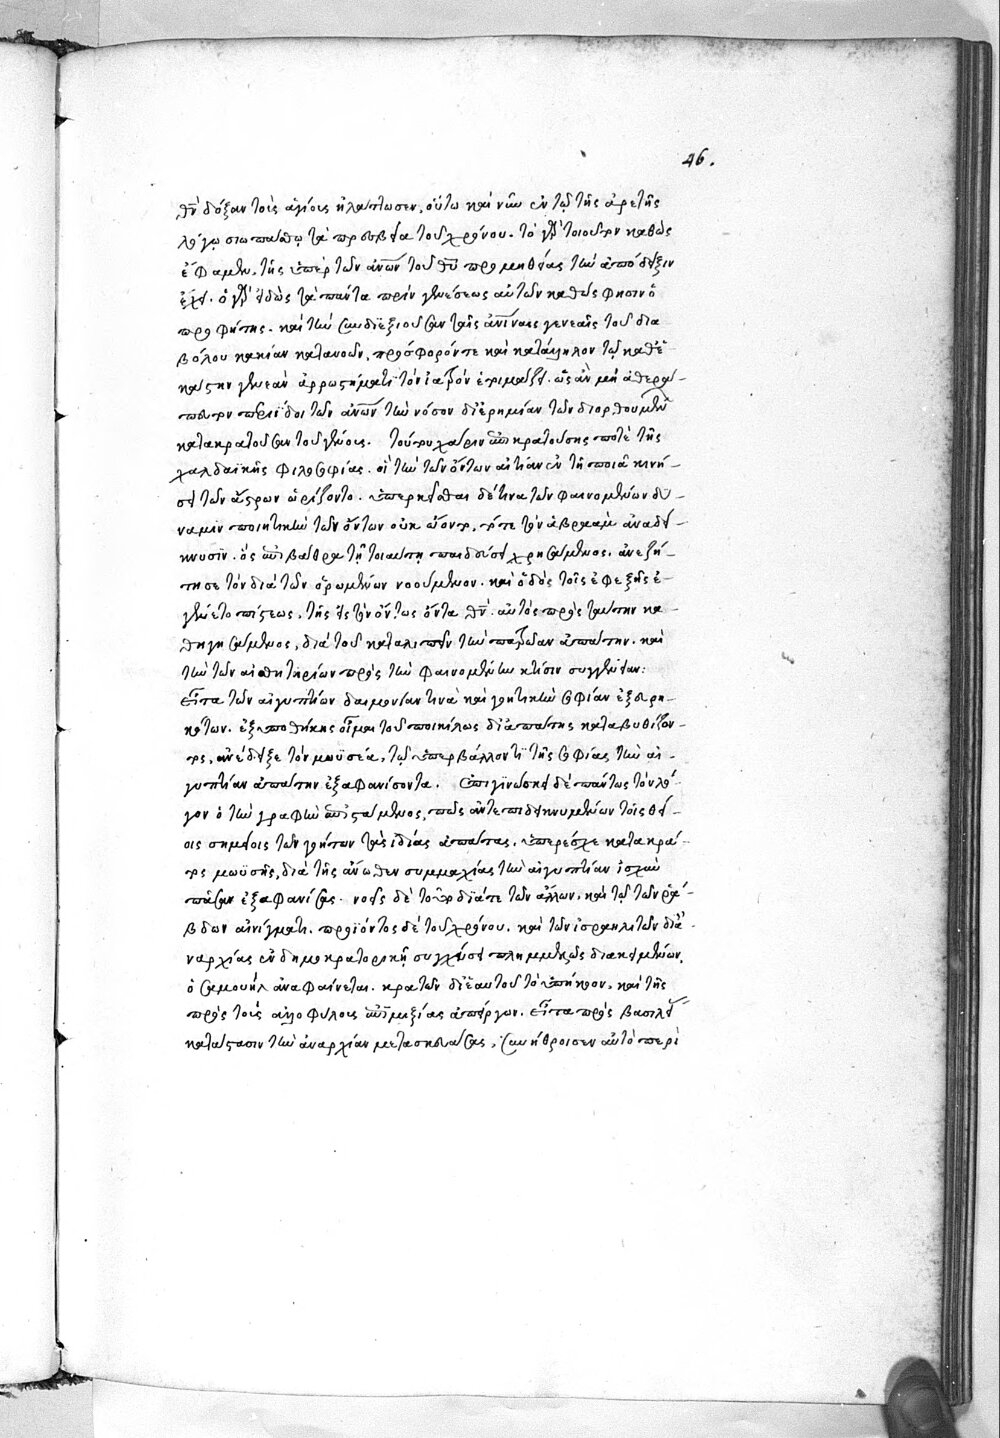 46.
θν δόξαν τοῖς ἁγίοις ἠλάττωσεν, οὕτω καὶ νῦν ἐν τῷ τῆς ἀρετῆς
λόγῳ σιωπάσθω τὰ πρεσβεῖα τοῦ χρόνου. τὸ γὰρ τοιοῦτον καθὼς
ἔφαμεν, τῆς ὑπὲρ τῶν ἀνων τοῦ θυ προμηθείας τὴν ἀπόδειξιν
ἔχει. ὁ γὰρ εἰδὼς τὰ πάντα πρὶν γενέσεως αὐτῶν καθώς φησιν ὁ
προφήτης. καὶ τὴν συνδιεξιοῦσαν ταῖς ἀνίναις γενεαῖς τοῦ δια
βόλου κακίαν κατανοῶν, πρόσφορόν τε καὶ κατάλληλον τῷ καθ' ἑ-
κάστην γενεὰν ἀρρωστήματι τὸν ἰατρὸν ἑτοιμάζει. ὡς ἂν μὴ ἀθερά-
πευτον περιίδοι τῶν ἀνων τὴν νόσον δι' ἐρημίαν τῶν διορθουμένων
κατακρατοῦσαν τοῦ γένους. τούτου χάριν ἐπικρατούσης ποτὲ τῆς
χαλδαϊκῆς φιλοσοφίας. οἳ τὴν τῶν ὄντων αἰτίαν ἐν τῇ ποιᾷ κινή-
σει τῶν ἄστρων ὡρίζοντο. ὑπερκεῖσθαι δέ τινα τῶν φαινομένων δύ-
ναμιν ποιητικὴν τῶν ὄντων οὐκ ᾤοντο, τότε τὸν ἀβραὰμ ἀναδεί-
κνυσιν. ὃς ἐπιβάθρᾳ τῇ τοιαύτῃ παιδεύσει χρησάμενος, ἀνεζή-
τησε τὸν διὰ τῶν ὁρωμένων νοούμενον. καὶ ὁδὸς τοῖς ἐφεξῆς ἐ-
γένετο πίστεως, τῆς εἰς τὸν ὄντως ὄντα θν. αὐτὸς πρὸς ταύτην κα-
θηγησάμενος, διὰ τοῦ καταλιπεῖν τὴν πατρῴαν ἀπάτην. καὶ
τὴν τῶν αἰσθητηρίων πρὸς τὴν φαινομένην κτίσιν συγγένειαν:
Εἶτα τῶν αἰγυπτίων δαιμονίαν τινὰ καὶ γοητικὴν σοφίαν ἐξευρη-
κότων. ἐξ ὑποθήκης οἶμαι τοῦ ποικίλως δι' ἀπάτης καταβυθίζον-
τος, ἀνέδειξε τὸν μωϋσέα, τῷ ὑπερβάλλοντι τῆς σοφίας τὴν αἰ-
γυπτίαν ἀπάτην ἐξαφανίσοντα. Ἐπιγινώσκει δὲ πάντως τὸν λό-
γον ὁ τὴν γραφὴν ἐπιστάμενος, πῶς ἀντεπιδεικνυμένων τοῖς θεί-
οις σημείοις τῶν γοήτων τὰς ἰδίας ἀπάτας. ὑπερέσχε κατακρά-
τος μωϋσῆς, διὰ τῆς ἄνωθεν συμμαχίας τὴν αἰγυπτίαν ἰσχὺν
πᾶσαν ἐξαφανίσας. νοεῖς δὲ τοῦτο διά τε τῶν ἄλλων, καὶ τῷ τῶν ῥά-
βδων αἰνίγματι. προϊόντος δὲ τοῦ χρόνου. καὶ τῶν ἰσραηλιτῶν δι' ἀ-
ναρχίας ἐν δημοκρατορικῇ συγχύσει πλημμελῶς διακειμένων,
ὁ σαμουὴλ ἀναφαίνεται. κρατῶν δι' ἑαυτοῦ τὸ ὑπήκοον. καὶ τῆς
πρὸς τοὺς ἀλλοφύλους ἐπιμιξίας ἀπείργων. Εἶτα πρὸς βασιλεί
κατάστασιν τὴν ἀναρχίαν μετασκευάσας, συνήθροισεν αὐτὸ περὶ